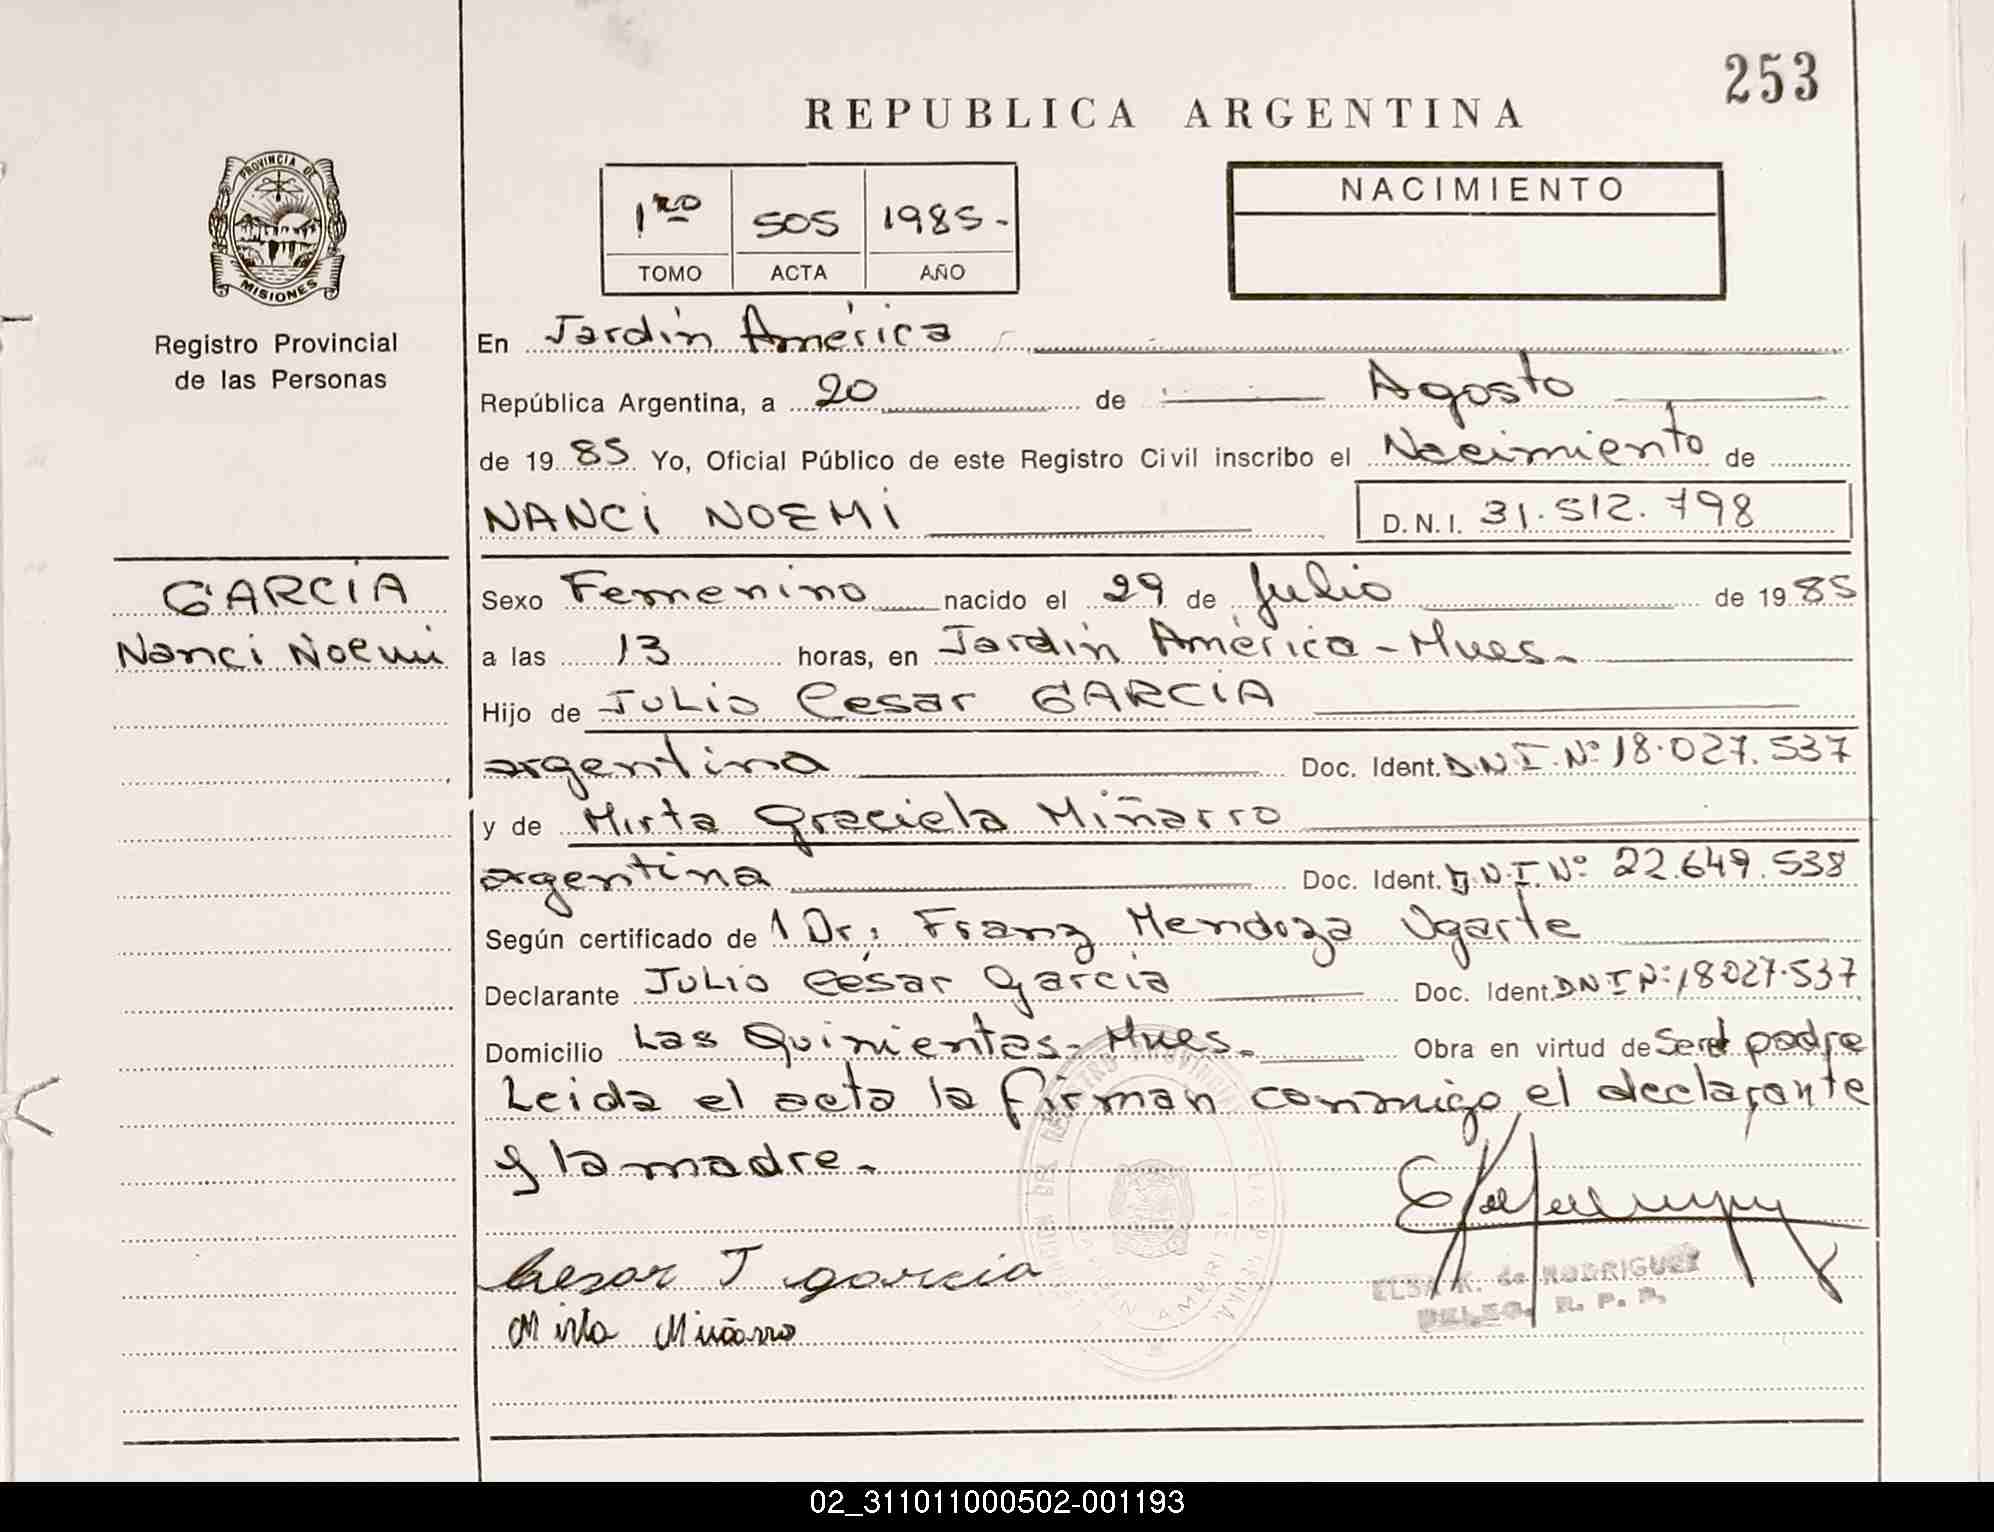 253
REPUBLICA ARGENTINA
PROVINCIA DE
MISIONES
Registro Provincial
de las Personas
1ro 505 1985.-
TOMO ACTA AÑO
NACIMIENTO
En Jardín América
República Argentina, a 20 de Agosto
de 1985 Yo, Oficial Público de este Registro Civil inscribo el Nacimiento de
NANCI NOEMI D.N.I. 31.512.798
GARCIA
Nanci Noemi
Sexo Femenino nacido el 29 de Julio de 1985
a las 13 horas, en Jardín América - Mnes.-
Hijo de Julio Cesar GARCIA
argentina Doc. Ident. D.N.I. Nº 18.027.537
y de Mirta Graciela Miñarro
argentina Doc. Ident. D.N.I. Nº 22.649.538
Según certificado de 1 Dr: Franz Mendoza Ugarte
Declarante Julio César Garcia Doc. Ident. DNI Nº: 18027.537
Domicilio Las Quinientas - Mnes.- Obra en virtud de Ser el padre
Leida el acta la firman conmigo, el declarante
y la madre.-
Cesar J garcia
Mirta Miñarro
ELBA K. de RODRIGUEZ
DELEG. R. P. P.
02_311011000502-001193